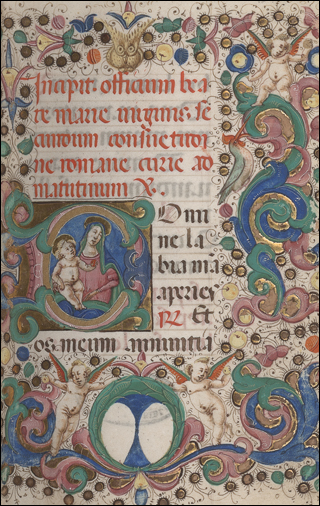 Incipit officium bea
te marie virginis se
cundum consuetudi
ne romane curie ad
matutinum ℣.
DOmi
ne la
bia m̄a
aperies
℞ Et
os meum annuntia